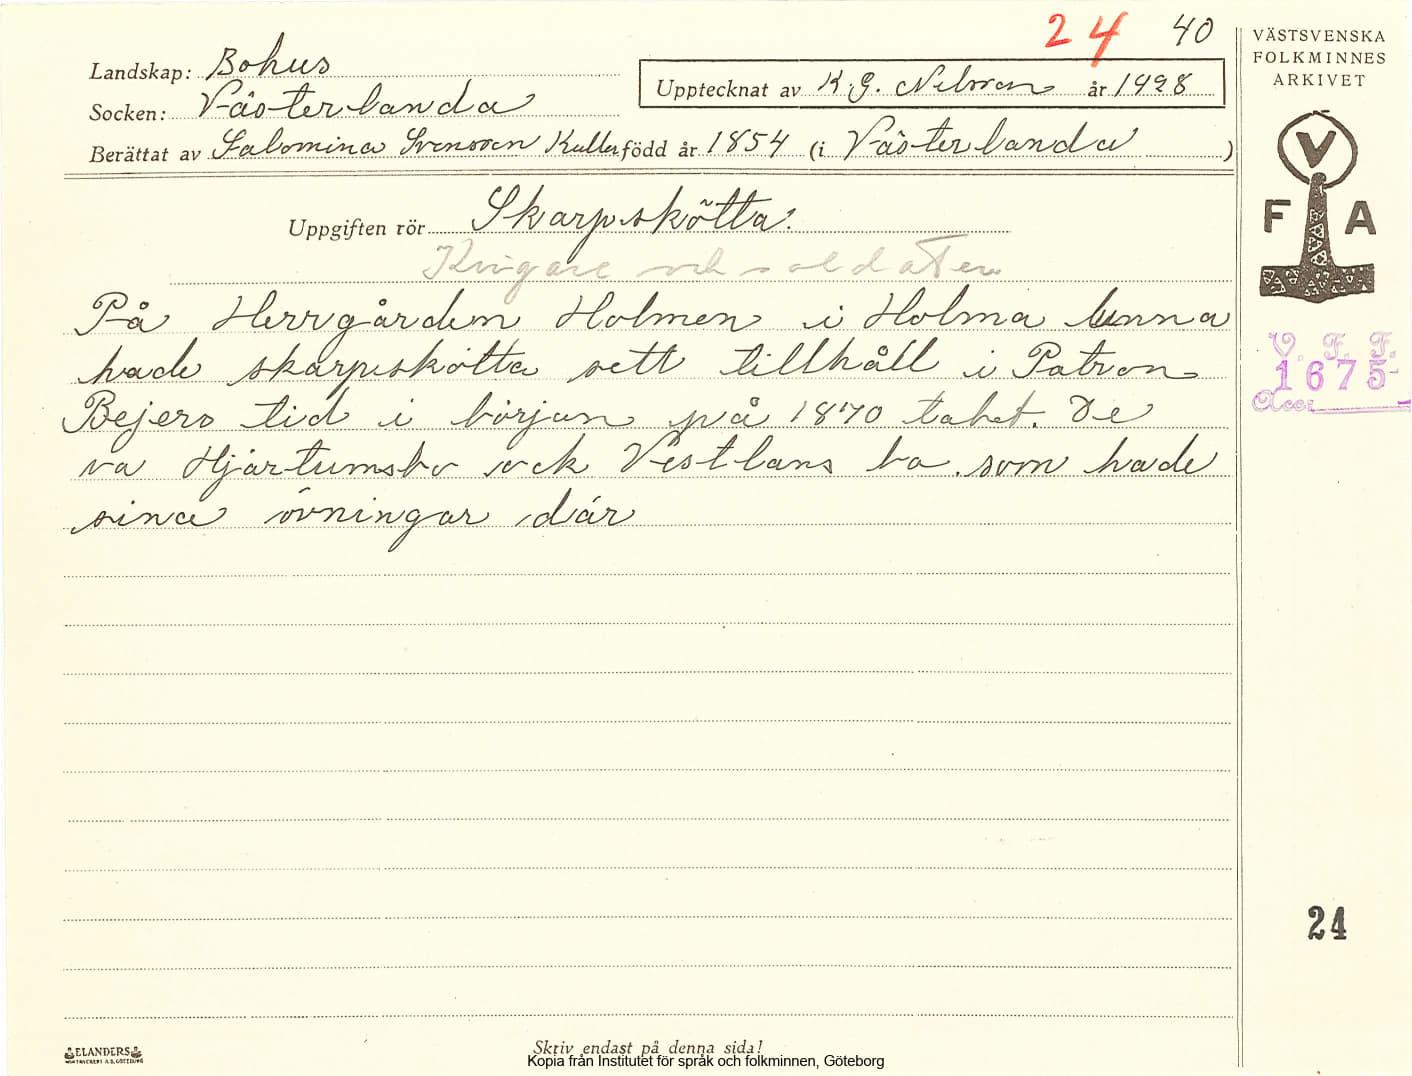 24 40
VÄSTSVENSKA
FOLKMINNES
ARKIVET
Landskap: Bohus
Upptecknat av K. G. Nilsson år 1928
Socken: Västerlanda
Berättat av Salomina Svensson Kullen född år 1854 (i Västerlanda)
V
F A
Uppgiften rör Skarpskötta.
Krigare och soldater
På Herrgården Holmen i Holma unna
hade skarpskötta sett tillhåll i Patron
Bejers tid i början på 1870 talet. De
va Hjärtumsbo ock Vestlans bo som hade
sina övningar där
V. F. F.
1675
Acc:
24
ELANDERS
Skriv endast på denna sida!
Kopia från Institutet för språk och folkminnen, Göteborg